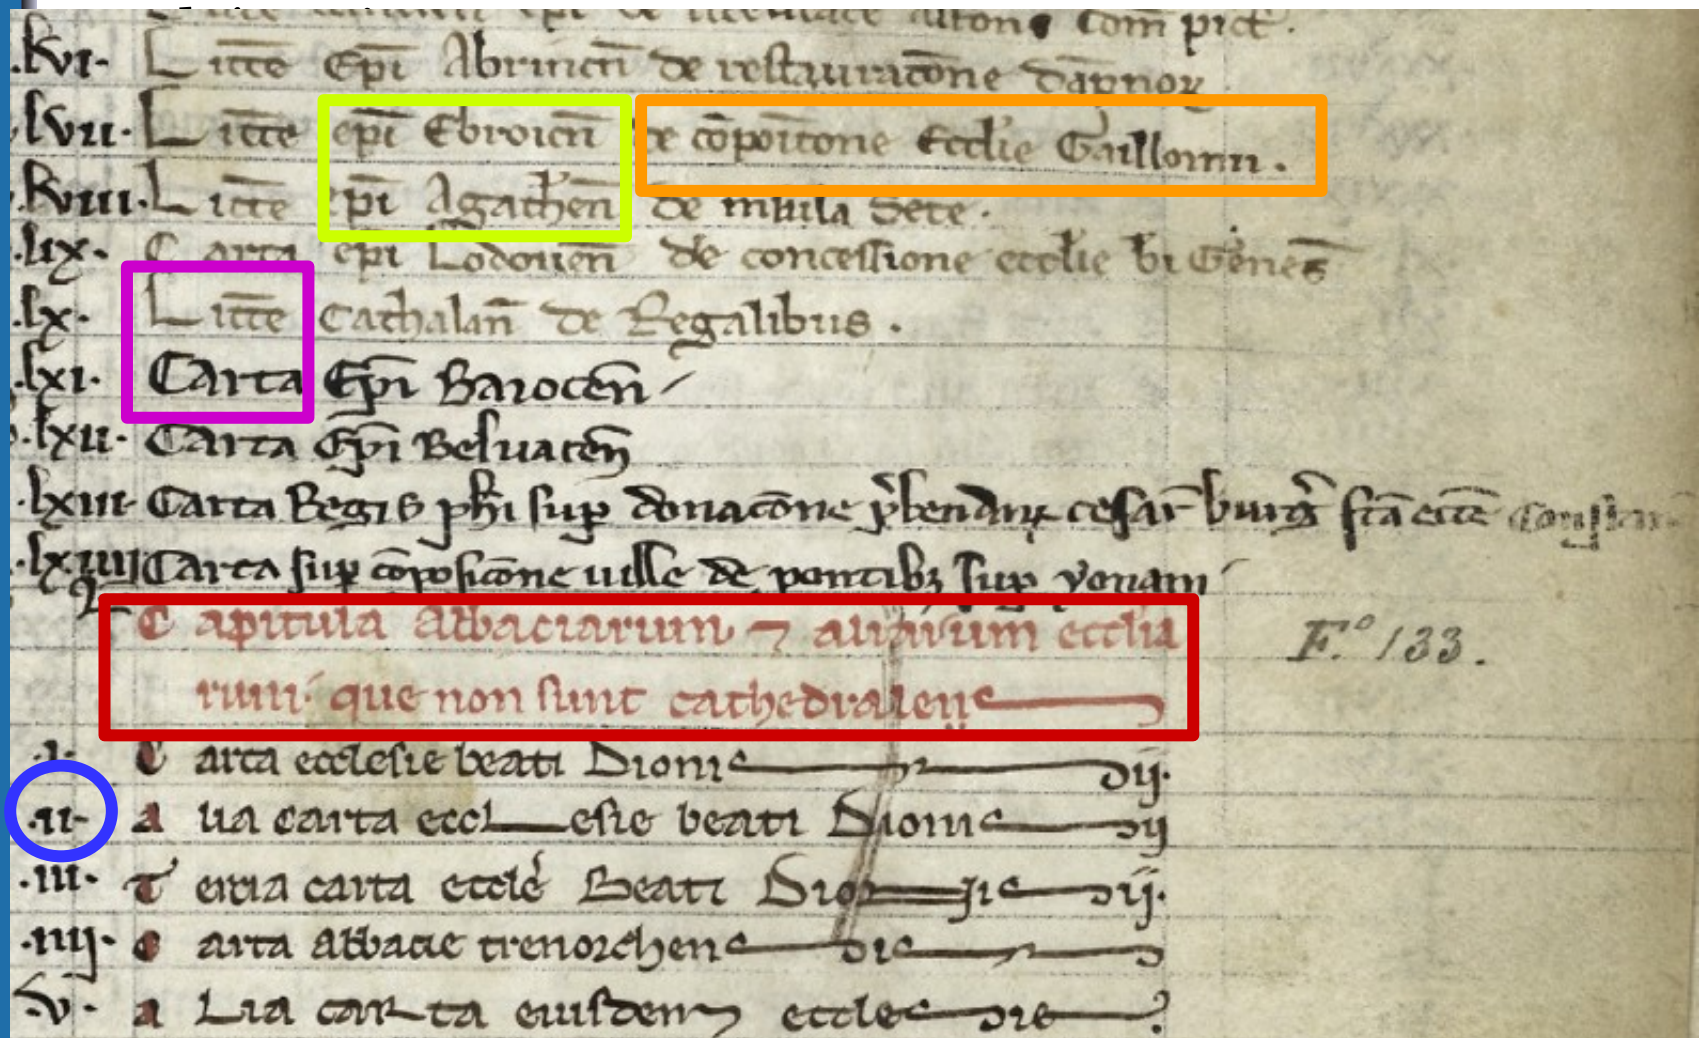 com pict.
.lvi. Litte Epi Abrincn de restauracone dapnor
lvii. Litte epi Ebroicn de copoitone Ecclie Gaillonin.
lviii. Litte epi Agathen de insula dete.
.lix. Carta epi Lodouen de concessione ecclie bi Genes
.lx. Litte Cathalan de Regalibus.
.lxi. Carta Epi Baiocen
.lxii. Carta Epi Beluacen
.lxiii. Carta Regis phi sup donacone pbendar cesar burg
.lxiiii Carta sup coposicone uille de pontibz sup yonam
Capitula Abbaciarum ⁊ aliarum ecclia
rum que non sunt cathedrales F.º 133.
.i. Carta ecclesie beati Dionisij.
.ii. alia carta ecclesie beati Dionisij
.iii. Tercia carta eccle Beati Dionisij.
.iiij. carta abbacie trenorchensis
.v. aLia carta eiusdem ecclesie